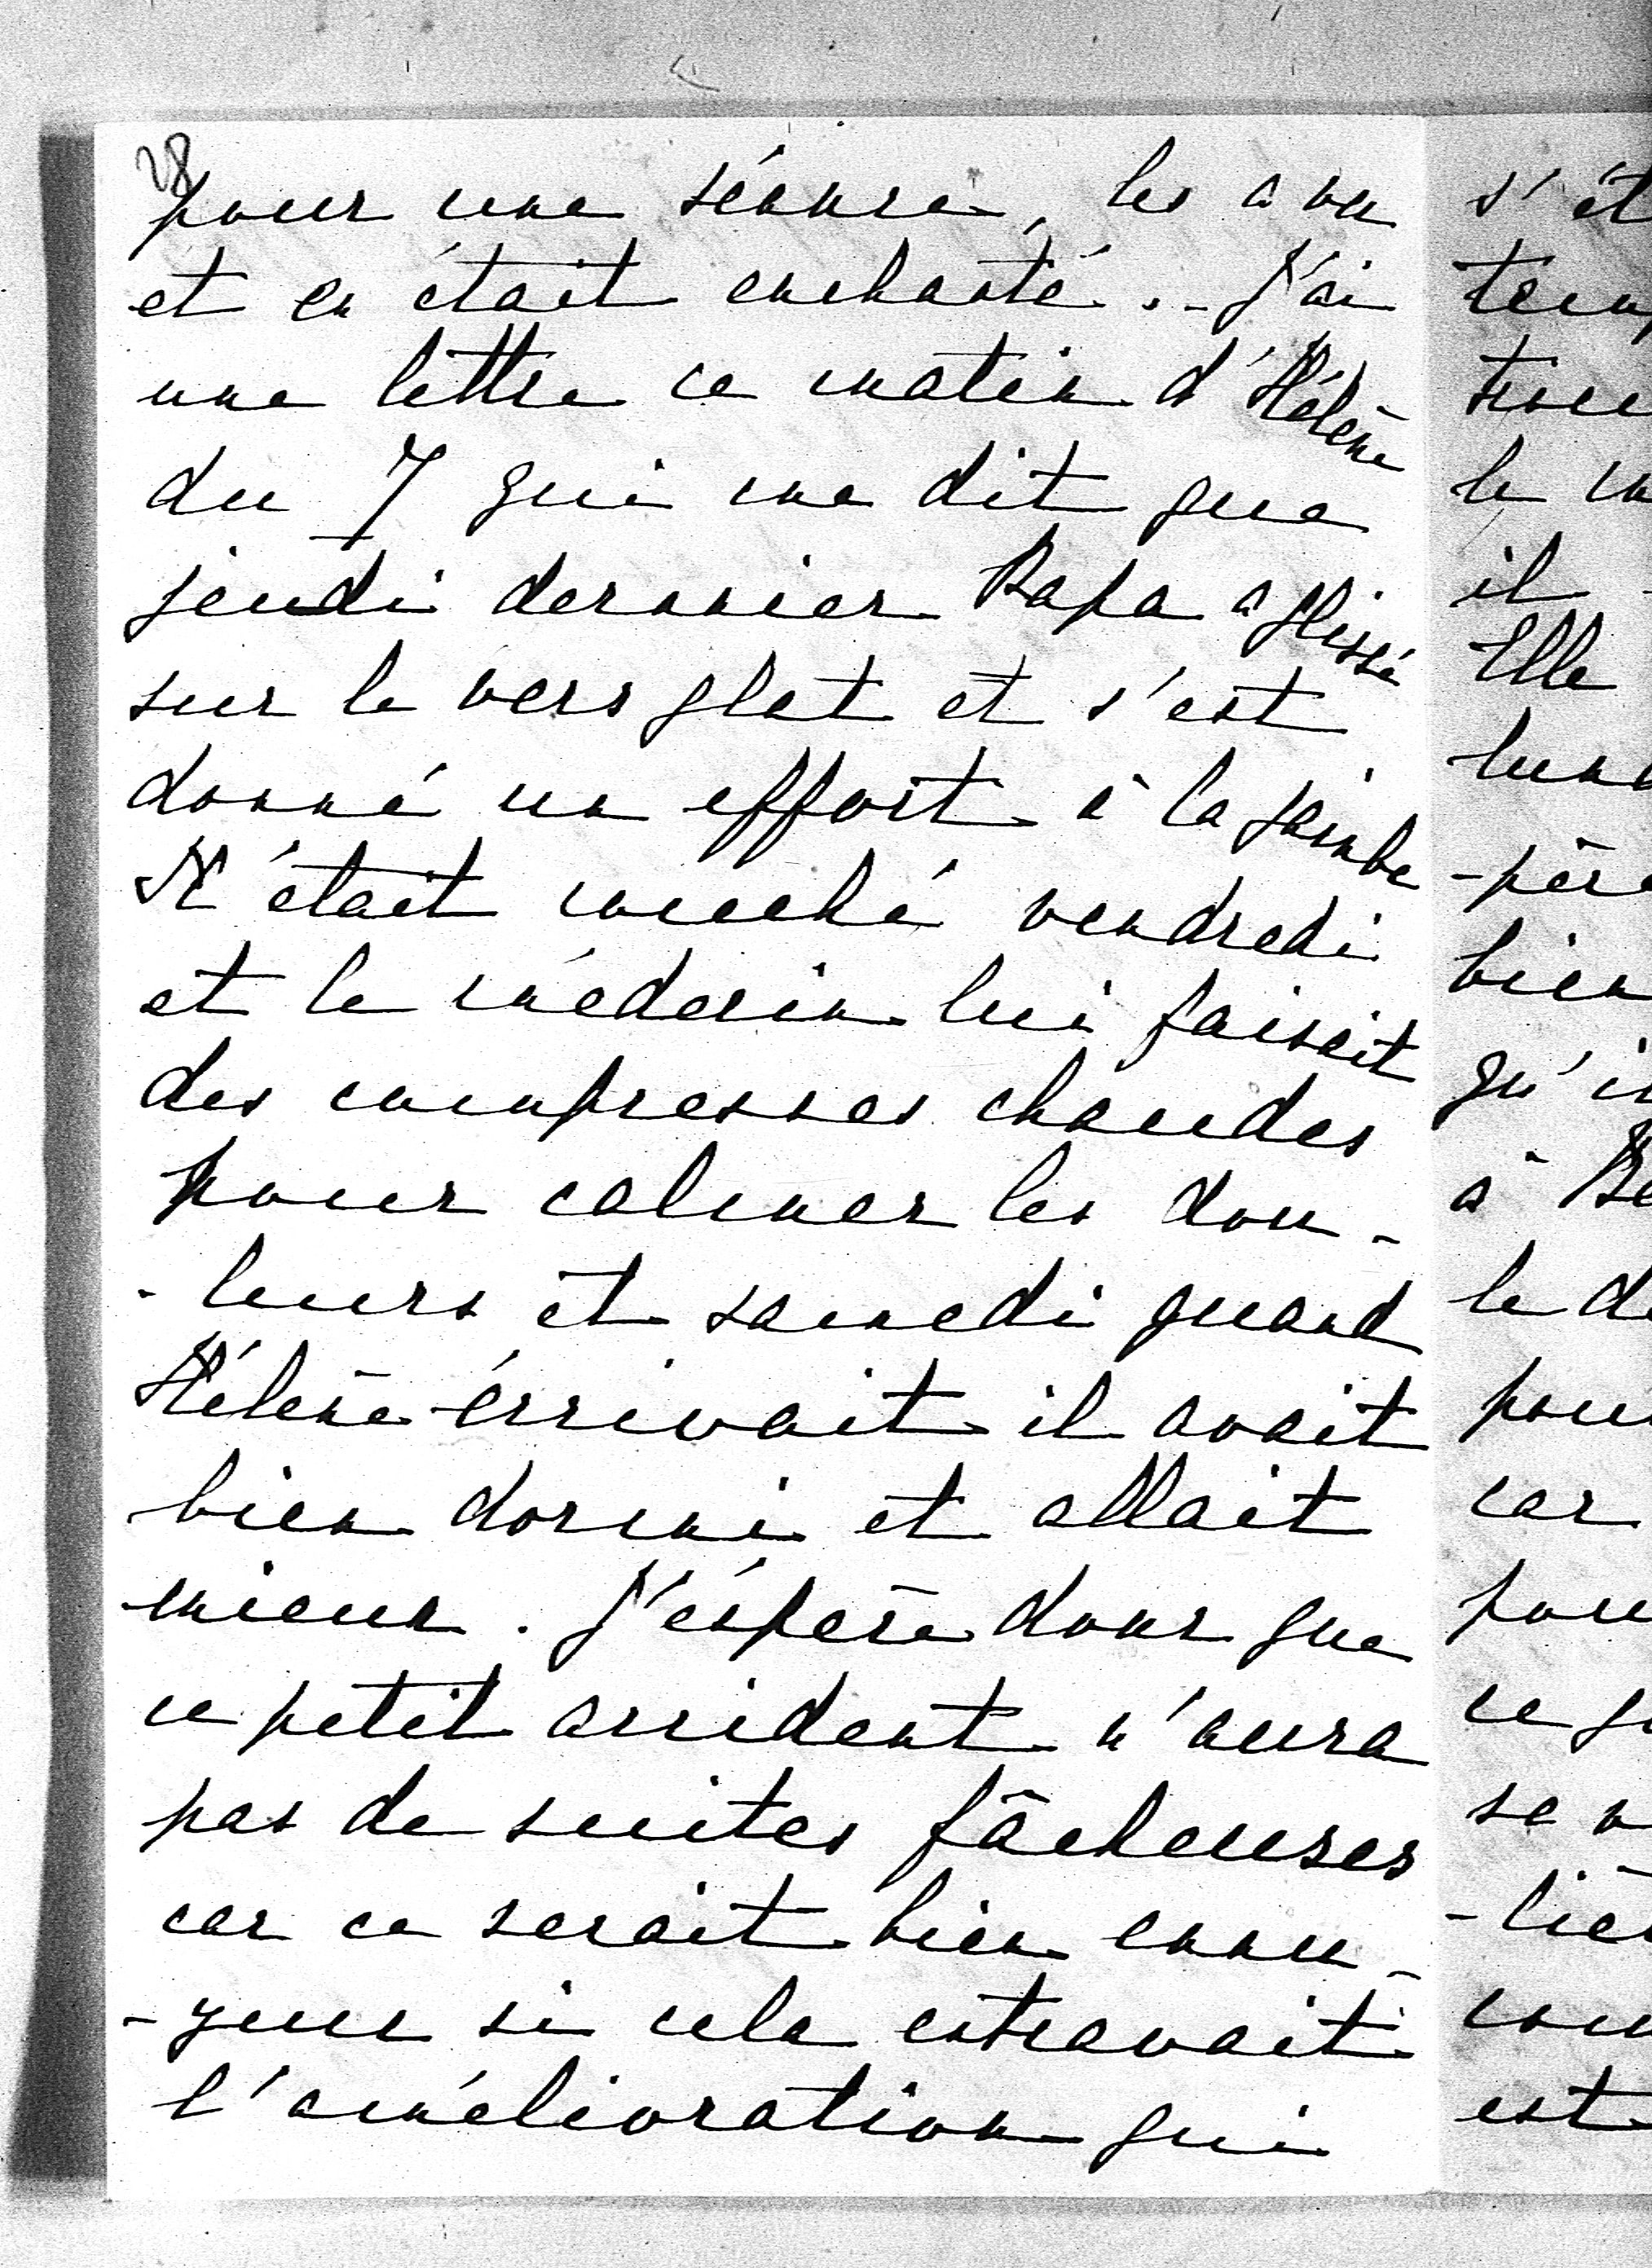 28
pour une séance, les a vu
et en était enchanté. - J'ai
une lettre ce matin d'Hélène
du 7 qui me dit que
jeudi dernier Papa a glissé
sur le vers glat et s'est
donné un effort à la jambe
Il était couché vendredi
et le médecin lui faisait
des compresses chaudes
pour calmer les dou-
-leurs et samedi quand
Hélène écrivait il avait
bien dormi et allait
mieux. J'espère donc que
ce petit accident n'aura
pas de suites fâcheuses
car ce serait bien ennu-
-yeux si cela entravait
l'amélioration qui
s'ét
tem
trou
le m
il
Elle
lun
-père
bien
qu'i
à Be
le d
pou
car
pou
ce q
se
-liè
cou
est